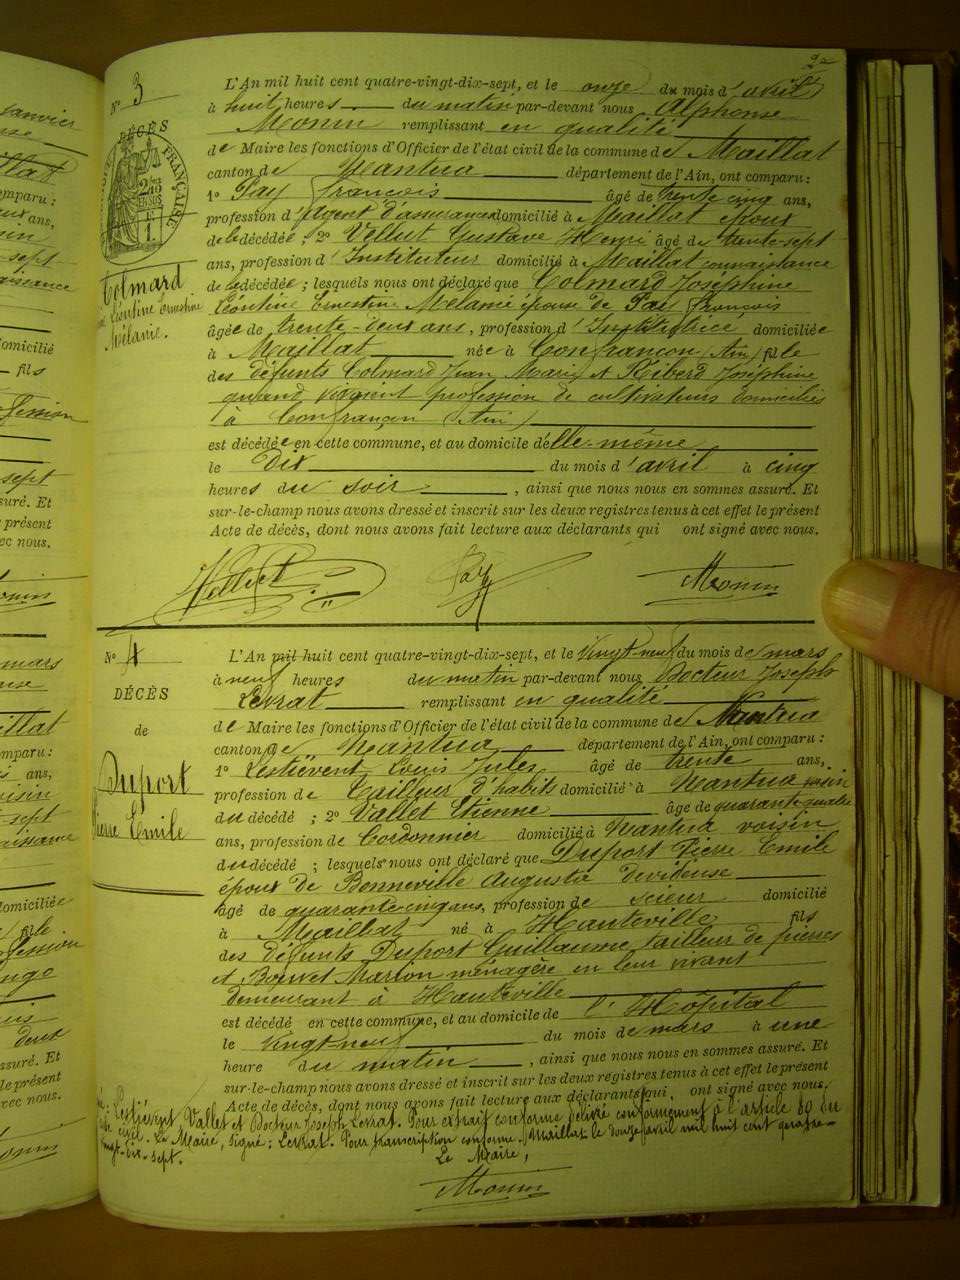 2e
N° 3
DÉCÈS
FRANÇAISE
Colmard
Léontine Ernestine
Mélanie.
L'An mil huit cent quatre-vingt-dix-sept, et le onze du mois d'avril
à huit heures du matin par-devant nous Alphonse
Monin remplissant en qualité
de Maire les fonctions d'Officier de l'état civil de la commune de Maillat
canton de Nantua département de l'Ain, ont comparu:
1° Pay françois âgé de trente cinq ans,
profession d'Agent d'assurances domicilié à Maillat époux
de la décédée; 2° Vellut Gustave Henri âgé de trente-sept
ans, profession d'Instituteur domicilié à Maillat connaissance
de la décédée; lesquels nous ont déclaré que Colmard Joséphine
Léontine Ernestine Mélanie épouse de Pay françois
âgée de trente-deux ans, profession d'Institutrice domiciliée
à Maillat née à Confrançon (Ain) fille
des défunts Colmard Jean Marie et Riberd Joséphine
quand vivaient profession de cultivateurs domiciliés
à Confrançon (Ain)
est décédée en cette commune, et au domicile d'elle-même
le Dix du mois d'avril à cinq
heures du soir, ainsi que nous nous en sommes assuré. Et
sur-le-champ nous avons dressé et inscrit sur les deux registres tenus à cet effet le présent
Acte de décès, dont nous avons fait lecture aux déclarants qui ont signé avec nous.
Vellut Pay Monin
N° 4
DÉCÈS
de
Duport
Pierre Emile
L'An mil huit cent quatre-vingt-dix-sept, et le vingt-neuf du mois de mars
à neuf heures du matin par-devant nous Docteur Joseph
Levrat remplissant en qualité
de Maire les fonctions d'Officier de l'état civil de la commune de Nantua
canton de Nantua département de l'Ain, ont comparu:
1° Lestiévent Louis Jules âgé de trente ans,
profession de Tailleur d'habits domicilié à Nantua voisin
du décédé; 2° Vallet Etienne âgé de quarante-quatre
ans, profession de Cordonnier domicilié à Nantua voisin
du décédé; lesquels nous ont déclaré que Duport Pierre Emile
époux de Bonneville Augusta dévideuse
âgé de quarante-cinq ans, profession de scieur domicilié
à Maillat né à Hauteville fils
des défunts Duport Guillaume tailleur de pierres
et Bouvet Marion ménagère en leur vivant
demeurant à Hauteville
est décédé en cette commune, et au domicile de l'Hôpital
le vingt neuf du mois de mars à une
heure du matin, ainsi que nous nous en sommes assuré. Et
sur-le-champ nous avons dressé et inscrit sur les deux registres tenus à cet effet le présent
Acte de décès, dont nous avons fait lecture aux déclarants qui ont signé avec nous.
Lestiévent, Vallet et Docteur Joseph Levrat. Pour extrait conforme délivré conformément à l'article 80 du
civil. Le Maire, signé: Levrat. Pour transcription conforme. Maillat le douze avril mil huit cent quatre-
vingt-dix-sept.
Le Maire,
Monin